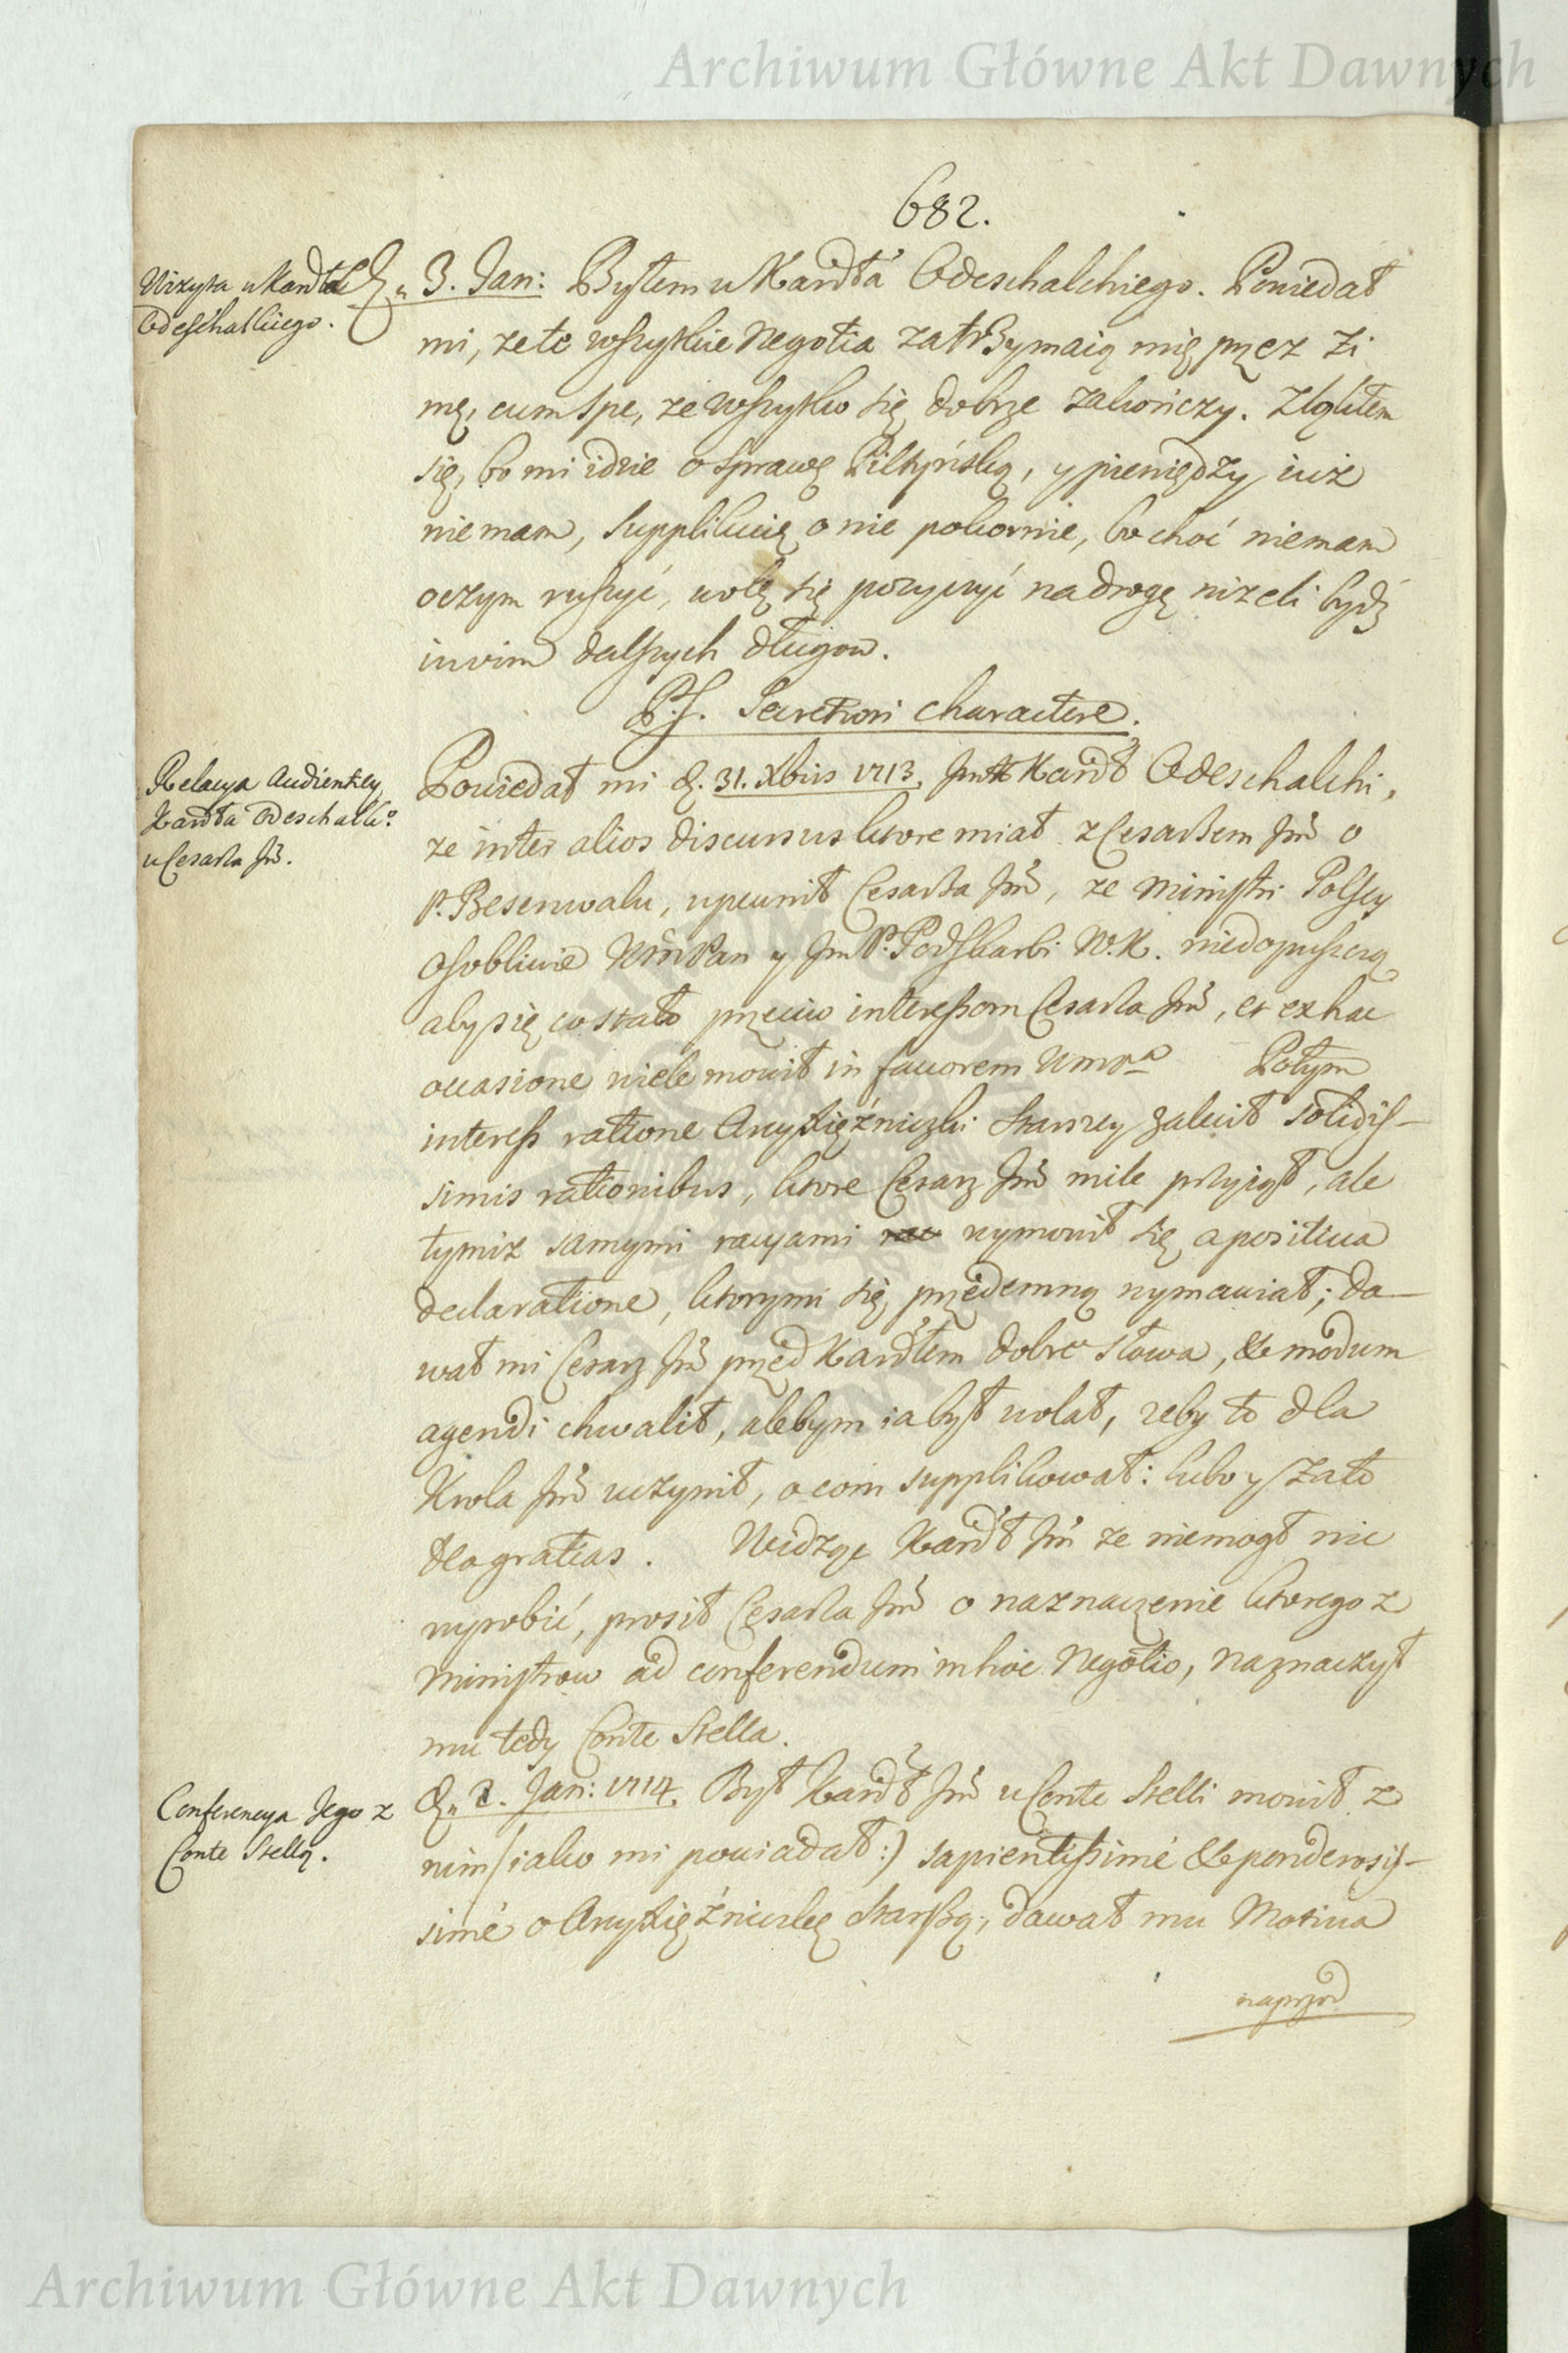 Archiwum Główne Akt Dawnych
682.
Wizyta u Kardła
Odeschalkiego.
D. 3. Jan: Byłem u Kardła Odeschalchiego. Powiedał
mi, że te wszytkie Negotia zatrzymaią mię przez Zi
mę, cum spe, że wszytko się dobrze zakończy. Zląkłem
się, bo mi idzie o sprawę Pilzyńską, y pieniędzy iuż
niemam, supplikuię o nie pokornie, bo choć niemam
oczym ruszyć, wolę się pozyczyć na drogę niżeli bydź
in vim dalszych długow.
P.S. Secretiori charactere.
Relacya Audientiey
Kardła Odeschalko
u Cesarza Jm.
Powiedał mi d. 31. Xbris 1713. Jm Kardł Odeschalchi,
że inter alios discursus ktore miał z Cesarzem Jm o
P. Besenwalu, upewnił Cesarza Jm, że Ministri Polscy
osobliwie Wm Pan y Jm P. Podskarbi W. K. niedopuszczą
aby się co stało przeciw interessom Cesarza Jm, et ex hac
occasione wiele mowił in favorem Wm Pa Potym
interess ratione Arcyxiężniczki Starszey zalecił solidis-
simis rationibus, ktore Cesarz Jm mile przyiął, ale
tymiż samymi racyami wymowił się a positiva
declaratione, ktorymi się przedemną wymawiał; da-
wał mi Cesarz Jm przed Kardłem dobre słowa, & modum
agendi chwalił, alebym ia był wolał, żeby to dla
Krola Jm uczynił, o com supplikował: lubo y za to
Deo gratias. Widząc Kardł Jm że niemogł nic
wyrobić, prosił Cesarza Jm o naznaczenie ktorego z
Ministrow ad conferendum in hoc Negotio, naznaczył
mu tedy Conte Stella.
Conferencya Jego z
Conte Stellą.
D. 2. Jan: 1714. Był Kardł Jm u Conte Stelli mowił z
nim (iako mi powiadał:) sapientissimè & ponderosis-
simè o Arcyxiężniczkę Starszą, dawał mu Motiva
naprzod
Archiwum Główne Akt Dawnych